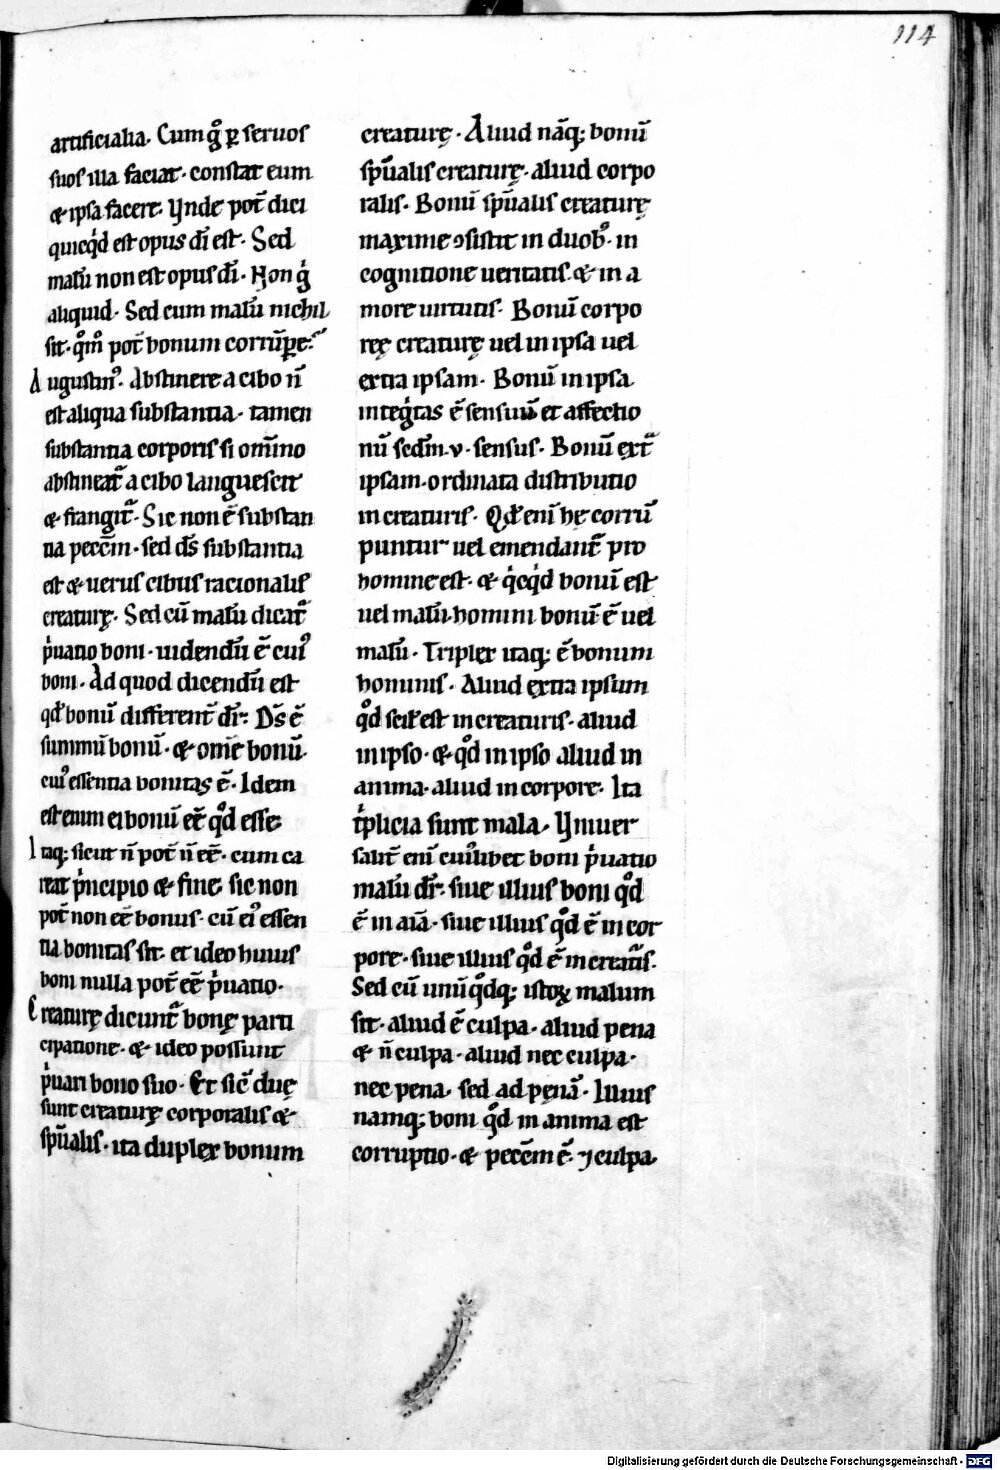 114
artificialia. Cum g̊ ꝑ seruos
suos illa faciat. constat eum
& ipsa facere. Vnde pot̄ dici
quicq̇d est opus dī est. Sed
malū non est opus dī. Non g̊
aliquid. Sed cum malū nichil
sit. qͦm̄ pot̄ bonum corrūꝑe.
Augustinꝰ. Abstinere a cibo n̄
est aliqua substantia. tamen
substantia corporis si om̄ino
abstineat̃ a cibo languescit
& frangit̃. Sic non ē substan
tia pecc̄m. sed ds̄ substantia
est & uerus cibus racionalis
creaturę. Sed cū malū dicat̃
p̍uatio boni. uidendū ē cuiꝰ
boni. Ad quod dicendū est
qd̄ bonū different̄ dr̄: Ds̄ ē
summū bonū. & om̄e bonū.
cuiꝰ essentia bonitas ē. Idem
est enim ei bonū eē qͦd esse
Itaq; sicut n̄ pot̄ n̄ eē. cum ca
reat p̍ncipio & fine, sic non
pot̄ non eē bonus. cū eiꝰ essen
tia bonitas sit. et ideo huius
boni nulla pot̄ eē p̍uatio.
Creaturę dicunt̃ bonę parti
cipatione. & ideo possunt
p̍uari bono suo. Et sic̄ duę
sunt creaturę corporalis &
sp̄ualis. ita duplex bonum
creaturę. Aliud nāq; bonū
sp̄ualis creaturę. aliud corpo
ralis. Bonū sp̄ualis creaturę
maxime ↄsistit in duobꝰ. in
cognitione ueritatis. & in a
more uirtutis. Bonū corpo
reę creaturę uel in ipsa uel
extra ipsam. Bonū in ipsa
integ̍tas ē sensuū et affectio
nū sc̄dm .v. sensus. Bonū ext̃
ipsam. ordinata distributio
in creaturis. Qd̄ eni hę corrū
puntur uel emendant̃ pro
homine est. & q̍cq̍d bonū est
uel malū. homini bonū ē uel
malū. Triplex itaq; ē bonum
hominis. Aliud extra ipsum
qͦd scil' est in creaturis. aliud
in ipso. & qͦd in ipso aliud in
anima. aliud in corpore. Ita
t̍plicia sunt mala. Vniuer
salit̄ eni cuiꝰlibet boni p̍uatio
malū dr̄. siue illius boni qͦd
ē in aīa. siue illius qͦd ē in cor
pore. siue illius qͦd ē in creat̃is.
Sed cū unū qͦdq; istoꝝ malum
sit. aliud ē culpa. aliud pena
& n̄ culpa. aliud nec culpa.
nec pena. sed ad pęnā. Illius
namq; boni qͦd in anima est
corruptio. & pecc̄m ē. ⁊ culpa.
Digitalisierung gefördert durch die Deutsche Forschungsgemeinschaft - DFG